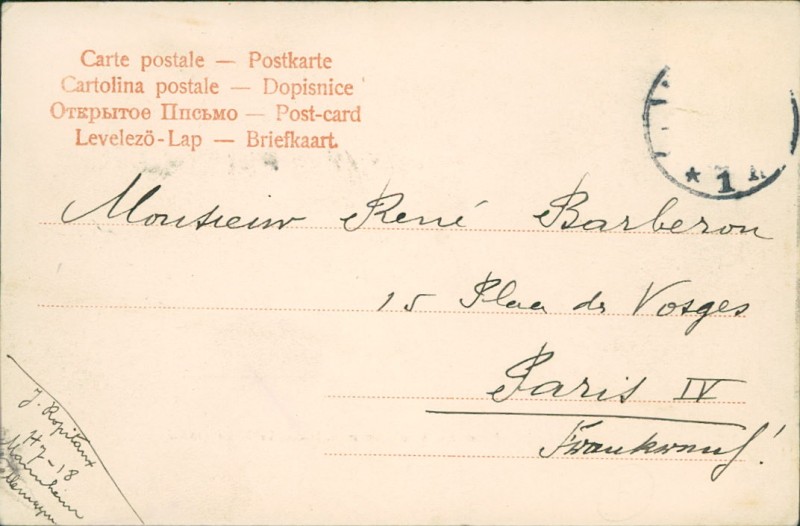 Carte postale — Postkarte
Cartolina postale — Dopisnice
Открытое Письмо — Post-card
Levelező-Lap — Briefkaart.
* 1
Monsieur René Barberon
15 Place des Vosges
Paris IV
Frankreich!
J. Ropitaux
H 7 - 18
Mannheim